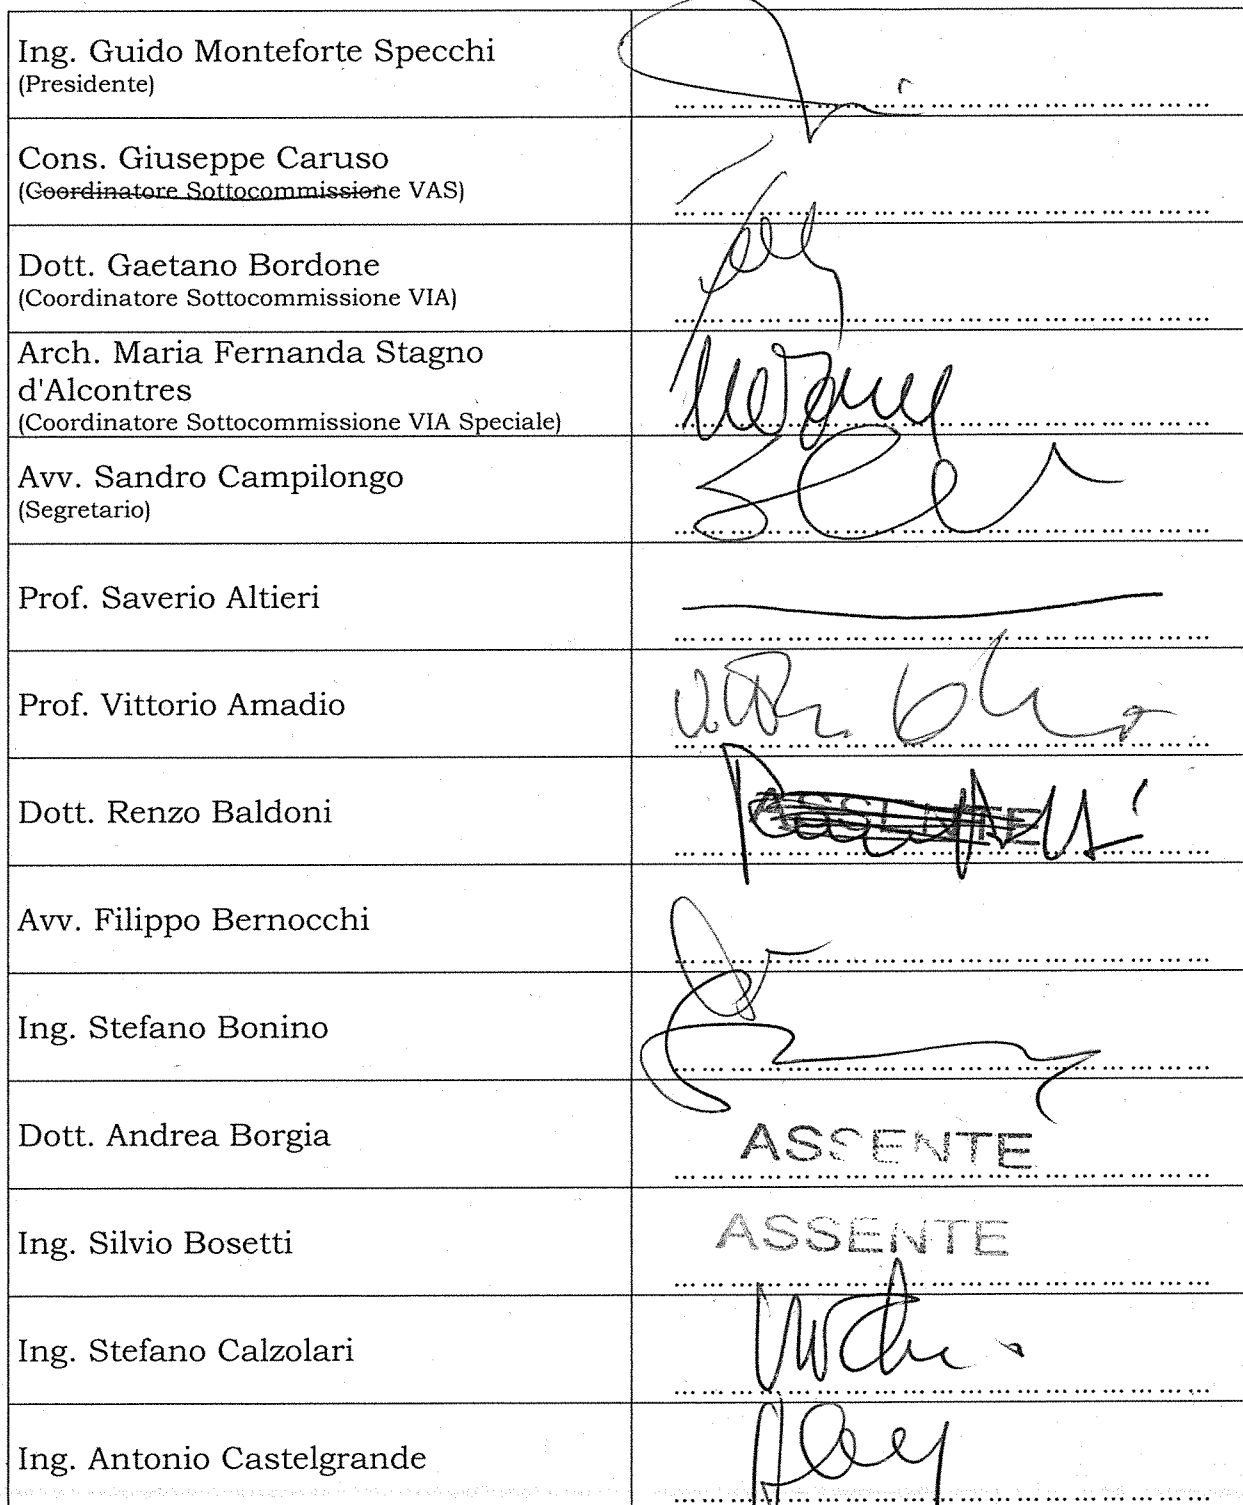 Ing. Guido Monteforte Specchi
(Presidente)
Cons. Giuseppe Caruso
(Coordinatore Sottocommissione VAS)
Dott. Gaetano Bordone
(Coordinatore Sottocommissione VIA)
Arch. Maria Fernanda Stagno
d'Alcontres
(Coordinatore Sottocommissione VIA Speciale)
Avv. Sandro Campilongo
(Segretario)
Prof. Saverio Altieri
Prof. Vittorio Amadio
Dott. Renzo Baldoni
ASSENTE
Avv. Filippo Bernocchi
Ing. Stefano Bonino
Dott. Andrea Borgia
ASSENTE
Ing. Silvio Bosetti
ASSENTE
Ing. Stefano Calzolari
Ing. Antonio Castelgrande